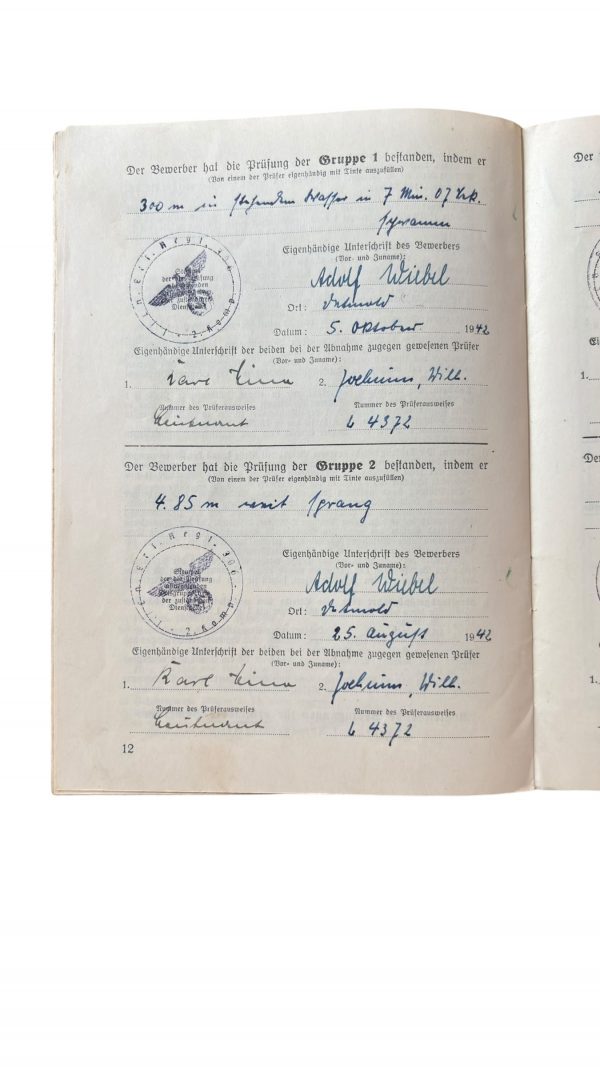 Der Bewerber hat die Prüfung der Gruppe 1 bestanden, indem er
(Von einem der Prüfer eigenhändig mit Tinte auszufüllen)
300 m in stehendem Wasser in 7 Min. 07 Sek.
schwamm
Eigenhändige Unterschrift des Bewerbers
(Vor- und Zuname):
Adolf Wiebel
Ort: Detmold
Datum: 5. Oktober 1942
Eigenhändige Unterschrift der beiden bei der Abnahme zugegen gewesenen Prüfer
(Vor- und Zuname):
1. Karl 2. Jochims, Will.
Nummer des Prüferausweises Nummer des Prüferausweises
Leutnant L 4372
Der Bewerber hat die Prüfung der Gruppe 2 bestanden, indem er
(Von einem der Prüfer eigenhändig mit Tinte auszufüllen)
4.85 m weit sprang
Eigenhändige Unterschrift des Bewerbers
(Vor- und Zuname):
Adolf Wiebel
Ort: Detmold
Datum: 25. August 1942
Eigenhändige Unterschrift der beiden bei der Abnahme zugegen gewesenen Prüfer
(Vor- und Zuname):
1. Karl 2. Jochims, Will.
Nummer des Prüferausweises Nummer des Prüferausweises
Leutnant L 4372
12
Der
1.
De
1.